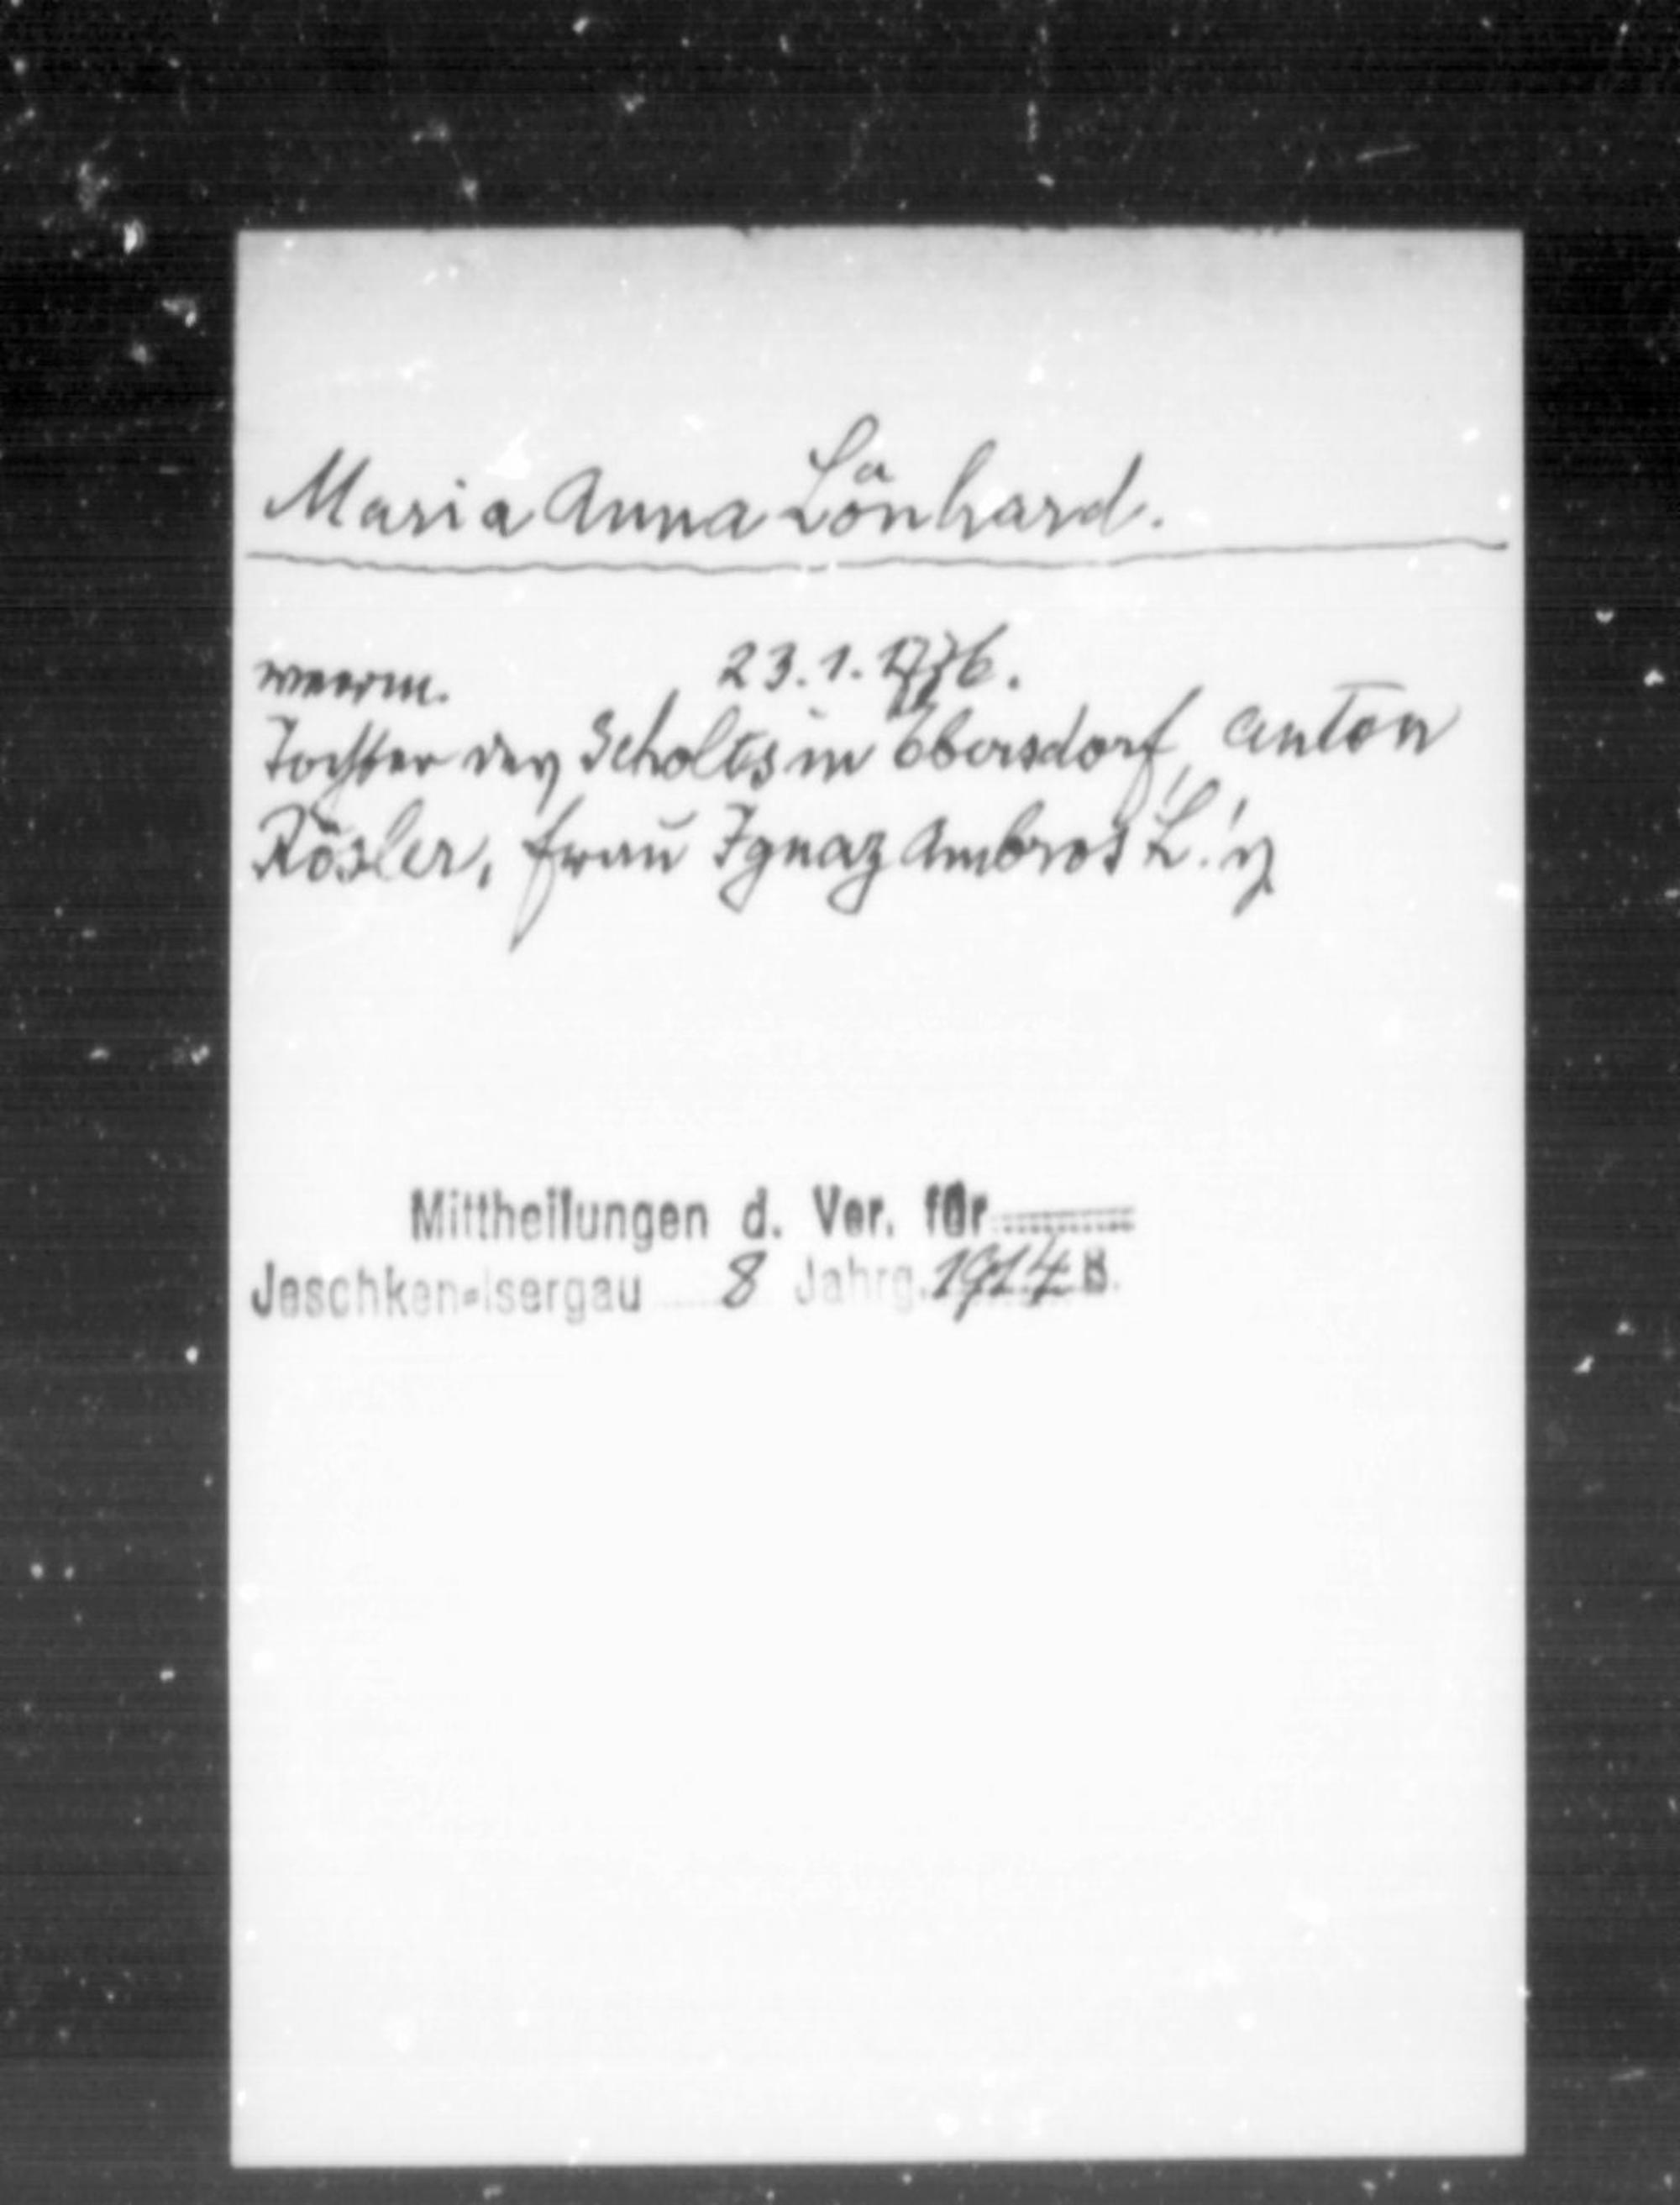 Maria Anna Lönhard.
verm. 23.1.1776.
Tochter des Scholtes in Ebersdorf, Anton
Rösler, Frau Ignaz Ambros L.'s
Mittheilungen d. Ver. für
Jeschken-Isergau 8 Jahrg. 1914 B.